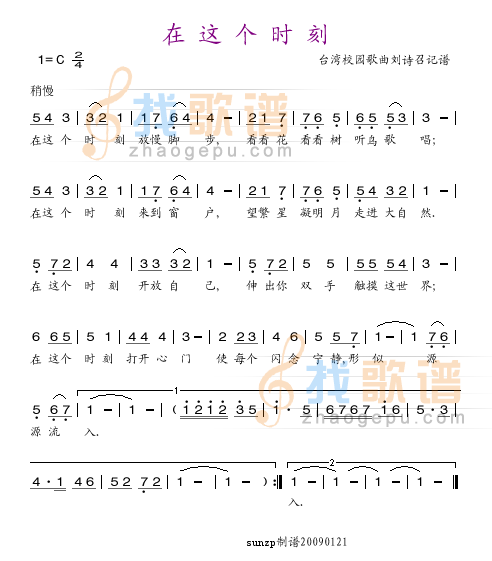 在这个时刻
1=C 2/4
台湾校园歌曲刘诗召记谱
稍慢
54 3 | 32 1 | 17 64 | 4 – | 21 7 | 76 5 | 65 53 | 3 – |
在这个 时 刻 放慢脚 步, 看看花 看看树 听鸟歌 唱;
找歌谱
zhaogepu.com
54 3 | 32 1 | 17 64 | 4 – | 21 7 | 76 5 | 54 32 | 1 – |
在这个 时 刻 来到窗 户, 望繁星 凝明月 走进大自 然.
5 72 | 4 4 | 33 32 | 1 – | 5 72 | 5 5 | 55 54 | 3 – |
在这个 时 刻 开放自 己, 伸出你 双 手 触摸这世 界;
6 65 | 5 1 | 44 4 | 3 – | 2 23 | 4 6 | 5 57 | 1 – | 1 76 |
在这个 时 刻 打开心 门 使每个 闪 念 宁静,形 似 源
找歌谱
zhaogepu.com
1
5 67 | 1 – | 1 – | (1212 35 | 1· 5 | 6767 16 | 5·3 |
源流 入.
2
4·1 46 | 52 72 | 1 – | 1 – ) :‖ 1 – | 1 – | 1 – ‖
入.
sunzp制谱20090121